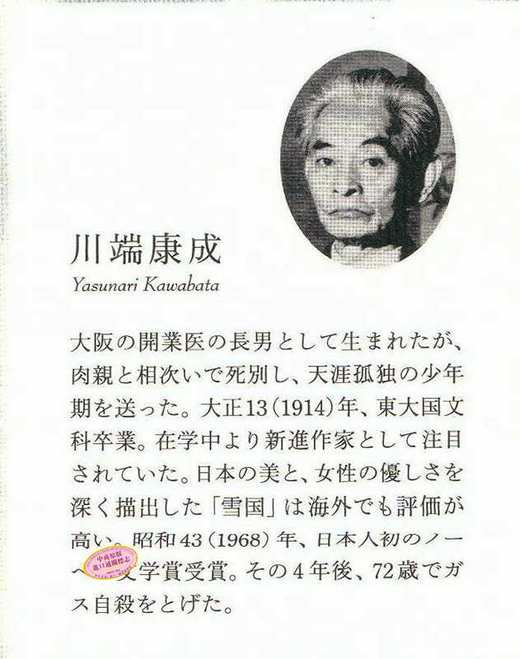 川端康成
Yasunari Kawabata
大阪の開業医の長男として生まれたが、
肉親と相次いで死別し、天涯孤独の少年
期を送った。大正13(1914)年、東大国文
科卒業。在学中より新進作家として注目
されていた。日本の美と、女性の優しさを
深く描出した「雪国」は海外でも評価が
高い。昭和43(1968)年、日本人初のノー
文学賞受賞。その4年後、72歳でガ
ス自殺をとげた。
中商原版
進口通關標志